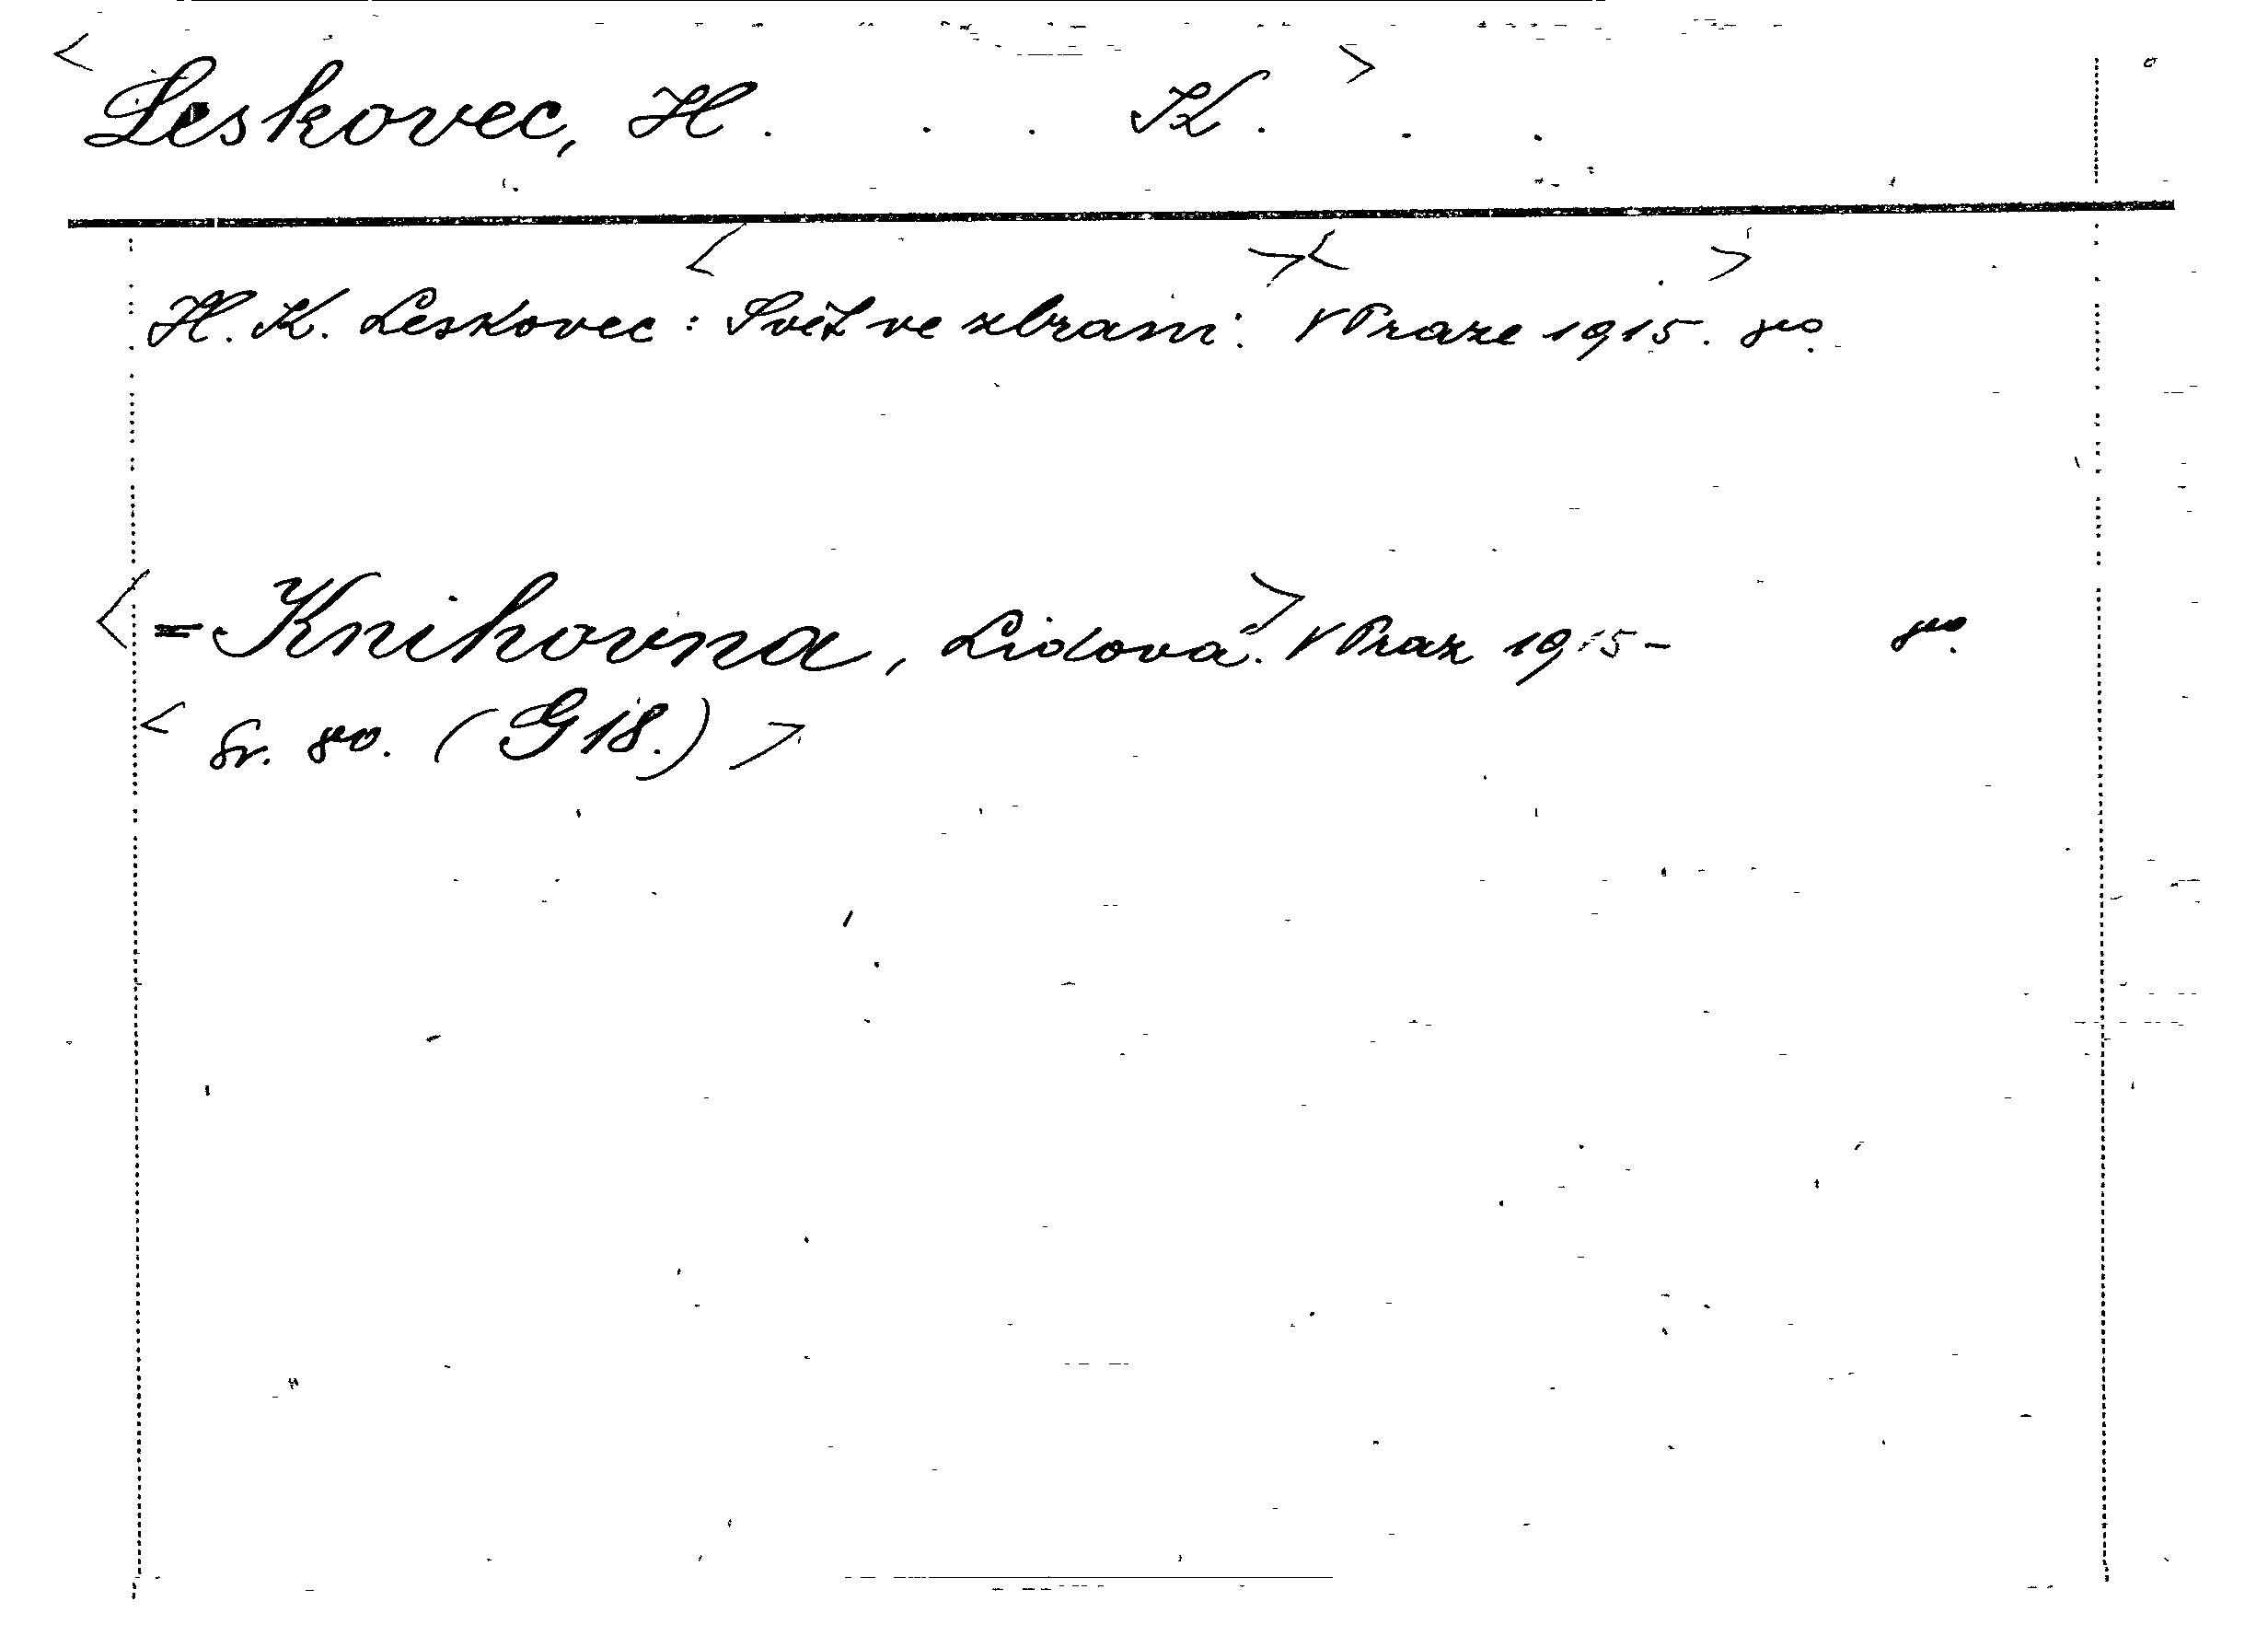 <Leskovec, H. . . K. > . .
H. K. Leskovec: <Svět ve zbrani.><V Praze 1915.> 8º.
<=Knihovna, Lidová.> V Praz 1915- 8º.
< Sv. 80. (G 18.) >